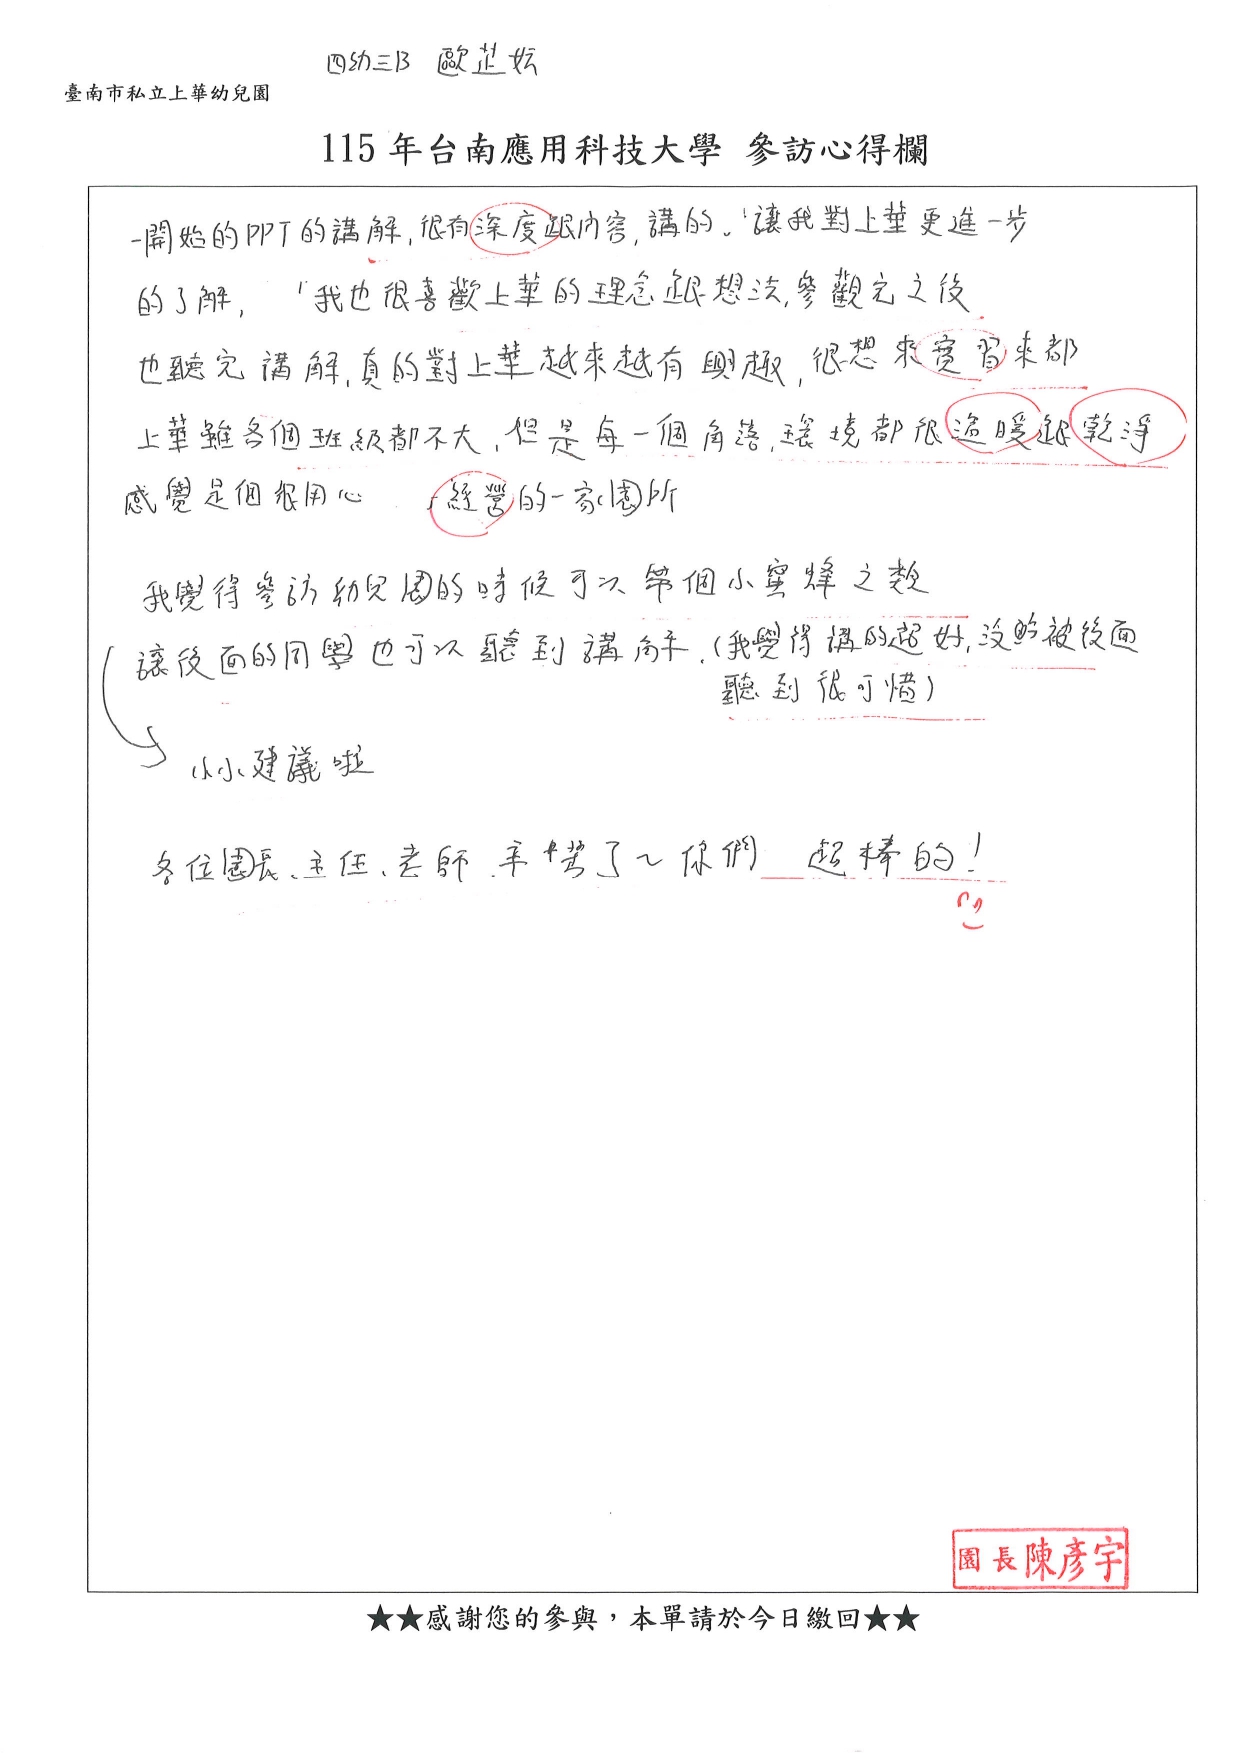 四幼三B 歐芷妘
臺南市私立上華幼兒園
115 年台南應用科技大學 參訪心得欄
一開始的PPT的講解,很有深度跟內容,講的、讓我對上華更進一步
的了解, 我也很喜歡上華的理念跟想法,參觀完之後
也聽完講解,真的對上華越來越有興趣,很想來實習來都
上華雖各個班級都不大,但是每一個角落,環境都很溫暖跟乾淨
感覺是個很用心 經營的一家園所
我覺得參訪幼兒園的時候可以帶個小蜜蜂之類
讓後面的同學也可以聽到講解.(我覺得講的超好,沒的被後面
聽到很可惜)
小小建議啦
各位園長、主任、老師.辛苦了~你們 超棒的!
園長陳彥宇
★★感謝您的參與,本單請於今日繳回★★